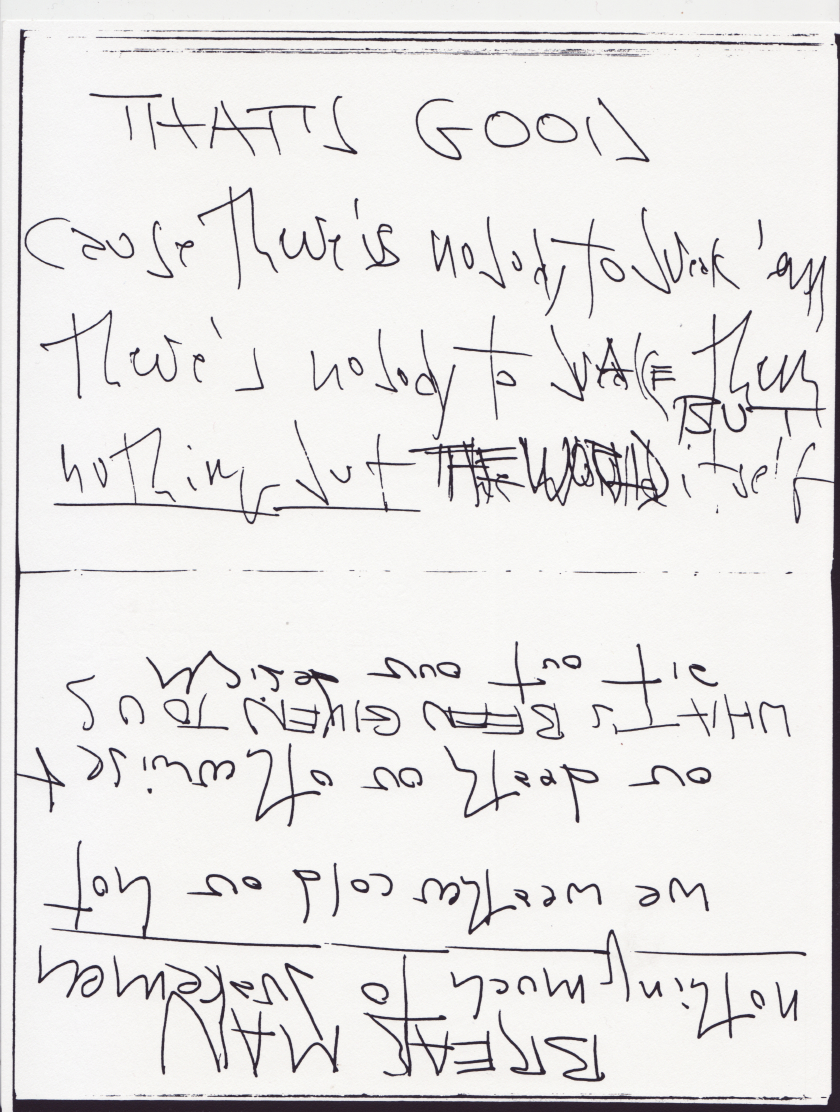 THATS GOOD
Cause there's nobody to break 'em
there's nobody to BRAKE them
BUT
nothing but itself
BREAK MAN
nothing much to brakemen
we weather cold or hot
or death or otherwise
WHAT IS BEEN GIVEN TO US
sit out our